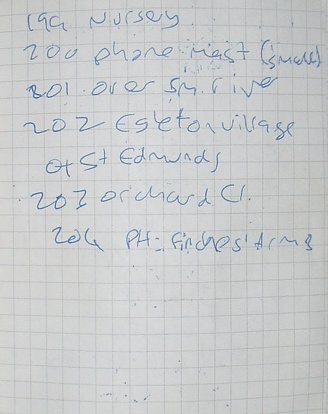 199 Nursery
200 phone mast (small)
201 over sm. river
202 Egleton village
of St Edmunds
203 orchard Cl.
204 PH = Finches' Arms